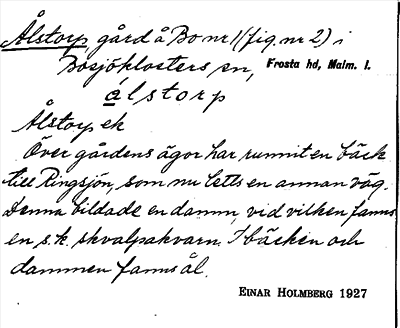 Ålstorp gård å Bo nr 1 (fig. nr 2) i
Bosjöklosters sn, Frosta hd, Malm. l.
ålstorp
Ålstorp ek
Över gårdens ägor har runnit en bäck
till Ringsjön, som nu letts en annan väg.
Denna bildade en damm, vid vilken fanns
en s.k. skvalpakvarn. I bäcken och
dammen fanns ål.
EINAR HOLMBERG 1927